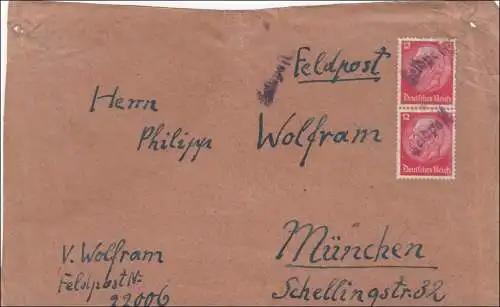 Feldpost
Herrn
Philipp Wolfram
München
Schellingstr. 82
V. Wolfram
Feldpost Nr.
22006
12
Deutsches Reich
12
Deutsches Reich